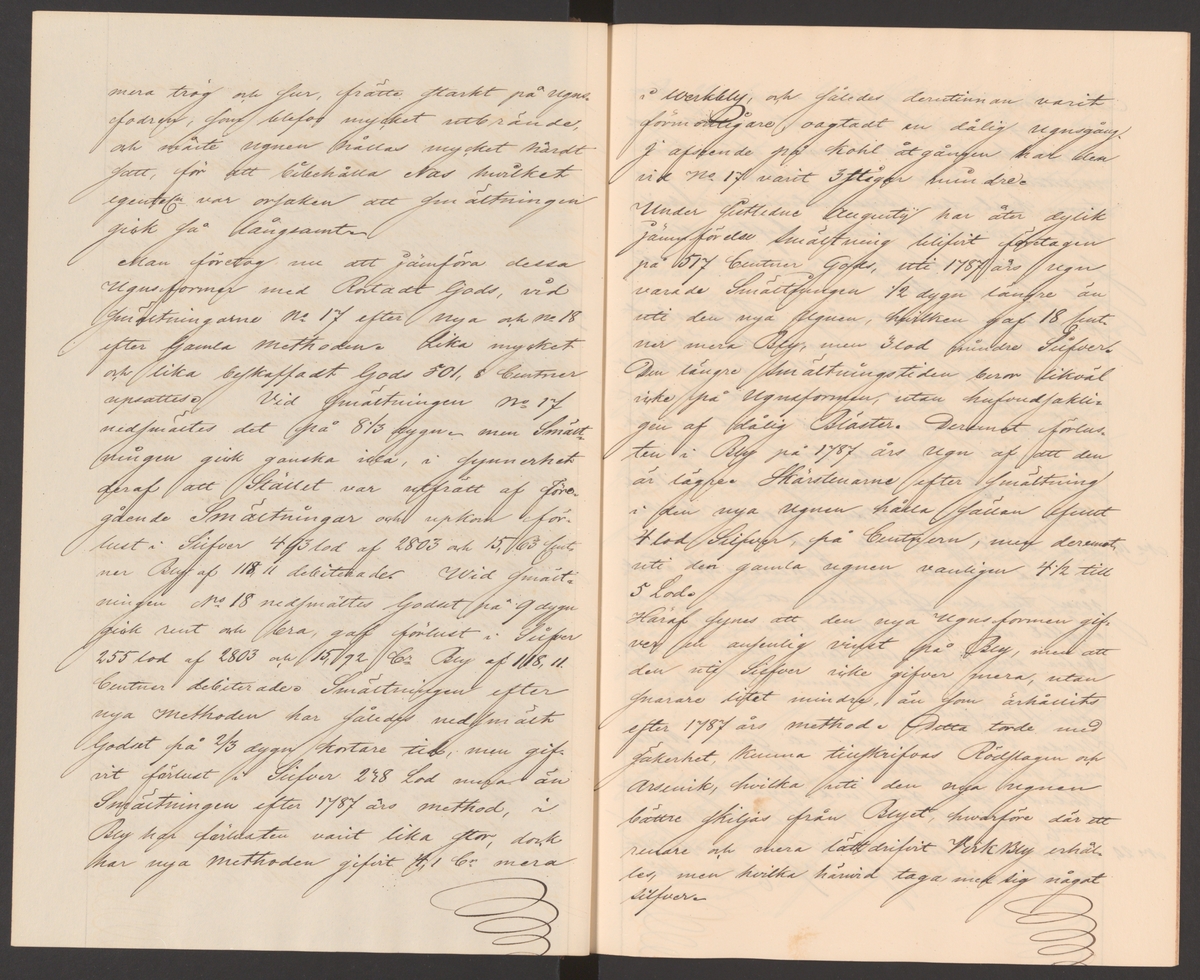 mera trög och sur, frätte starkt på ugns-
fodren, som blefvo mycket utbrände,
och måste ugnen hållas mycket hårdt
satt, för att bibehålla Nas hvilket
egentel. var orsaken att smältningen
gick så långsamt.
Man företog nu att jämföra dessa
Ugnsformer med Rostadt Gods, vid
Smältningarne No 17 efter nya och No 18
efter Gamla methoden. Lika mycket
och lika beskaffadt Gods 501,8 Centner
upsattes. Vid Smältningen No 17
nedsmältes det på 8 1/3 dygn, men Smält-
ningen gick ganska illa, i synnerhet
deraf att Stället var utfrätt af före-
gående Smältningar och upkom för-
lust i Silfver 493 lod af 2803 och 15,63 Cent-
ner Bly af 118,11 debiterade. Wid Smält-
ningen No 18 nedsmältes Godset på 9 dygn
gick rent och bra, gaf förlust i Silfver
255 lod af 2803 och 15,92 Cr Bly af 118,11
Centner debiterade. Smältningen efter
nya methoden har således nedsmält
Godset på 2/3 dygn kortare tid, men gif-
vit förlust i Silfver 238 Lod mera än
Smältningen efter 1787 års method, i
Bly har förlusten varit lika stor, dock
har nya methoden gifvit 4,1 Cr mera
i Werkbly, och således derutinnan varit
förmonligare, oagtadt en dålig ugnsgång.
I afseende på Kohl åtgången har den
vid No 17 varit 3 stigar mindre.
Under sistledne Augusty har åter dylik
Jämförelse Smältning blifvit företagen
på 517 Centner Gods, uti 1787 års ugn
varade Smältningen 1/2 dygn längre än
uti den nya Ugnen, hvilken gaf 18 Cent-
ner mera Bly, men 3 lod mindre Silfver.
Den längre Smältningstiden beror likväl
icke på Ugnsformen, utan hufvudsakli-
gen af dålig Bläster. Deremot förlus-
ten i Bly på 1787 års ugn af att den
är lägre. Skärstenarne efter Smältning
i den nya Ugnen hålla sällan fullt
4 lod Silfver, på Centnern, men deremot
uti den gamla ugnen vanligen 4 1/2 till
5 Lod.
Häraf synes att den nya Ugnsformen gif-
ver en ansenlig vinst på Bly, men att
den uti Silfver icke gifver mera, utan
snarare litet mindre, än som erhållits
efter 1787 års method. Detta torde med
säkerhet, kunna tillskrifvas Rödslagen och
Arsenik, hvilka uti den nya ugnen
bättre skiljas från Blyet, hvarföre där ett
renare och mera lättdrifvit Verk Bly erhål-
les, men hvilka härvid taga med sig något
Silfver.